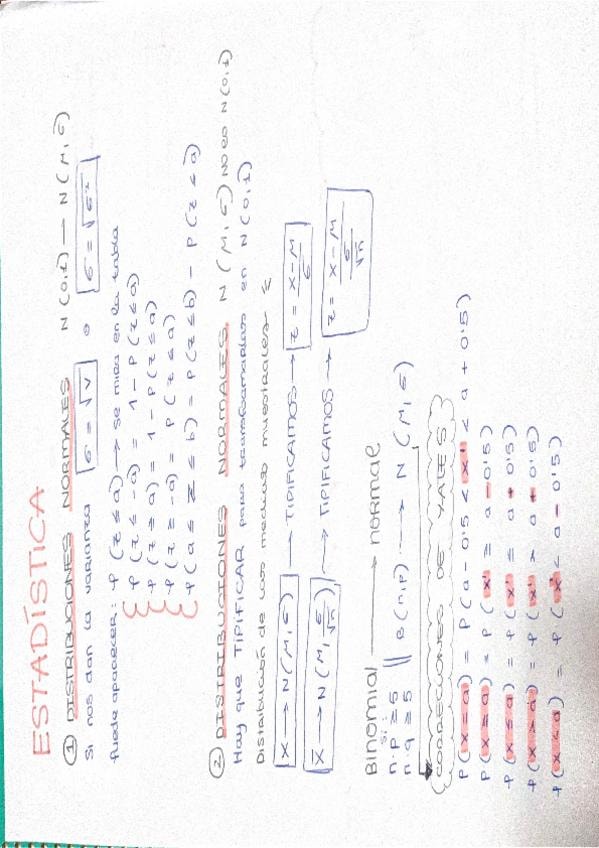 ESTADÍSTICA
① DISTRIBUCIONES NORMALES N(0,1) → N(M,σ)
Si nos dan la varianza σ=√V o σ=√σ²
Puede aparecer: - P(z ≤ a) → se mira en la tabla
P(z ≤ -a) = 1 - P(z ≤ a)
P(z ≥ a) = 1 - P(z ≤ a)
P(z ≥ -a) = P(z ≤ a)
P(a ≤ z ≤ b) = P(z ≤ b) - P(z ≤ a)
② DISTRIBUCIONES NORMALES N(M,σ) NO ES N(0,1)
Hay que TIPIFICAR para transformarlas en N(0,1)
Distribución de las medias muestrales
X → N(M,σ) → TIPIFICAMOS → z = X-M/σ
X̄ → N(M, σ/√n) → TIPIFICAMOS → z = X-M/σ/√n
Binomial → normal
si:
n·p ≥ 5 || B(n,p) → N(M,σ)
n·q ≥ 5
CORRECIONES DE YATES
P(x=a) = P(a-0'5 < x' < a+0'5)
P(x≥a) = P(x' ≥ a-0'5)
P(x≤a) = P(x' ≤ a+0'5)
P(x>a) = P(x' > a+0'5)
P(x<a) = P(x' < a-0'5)